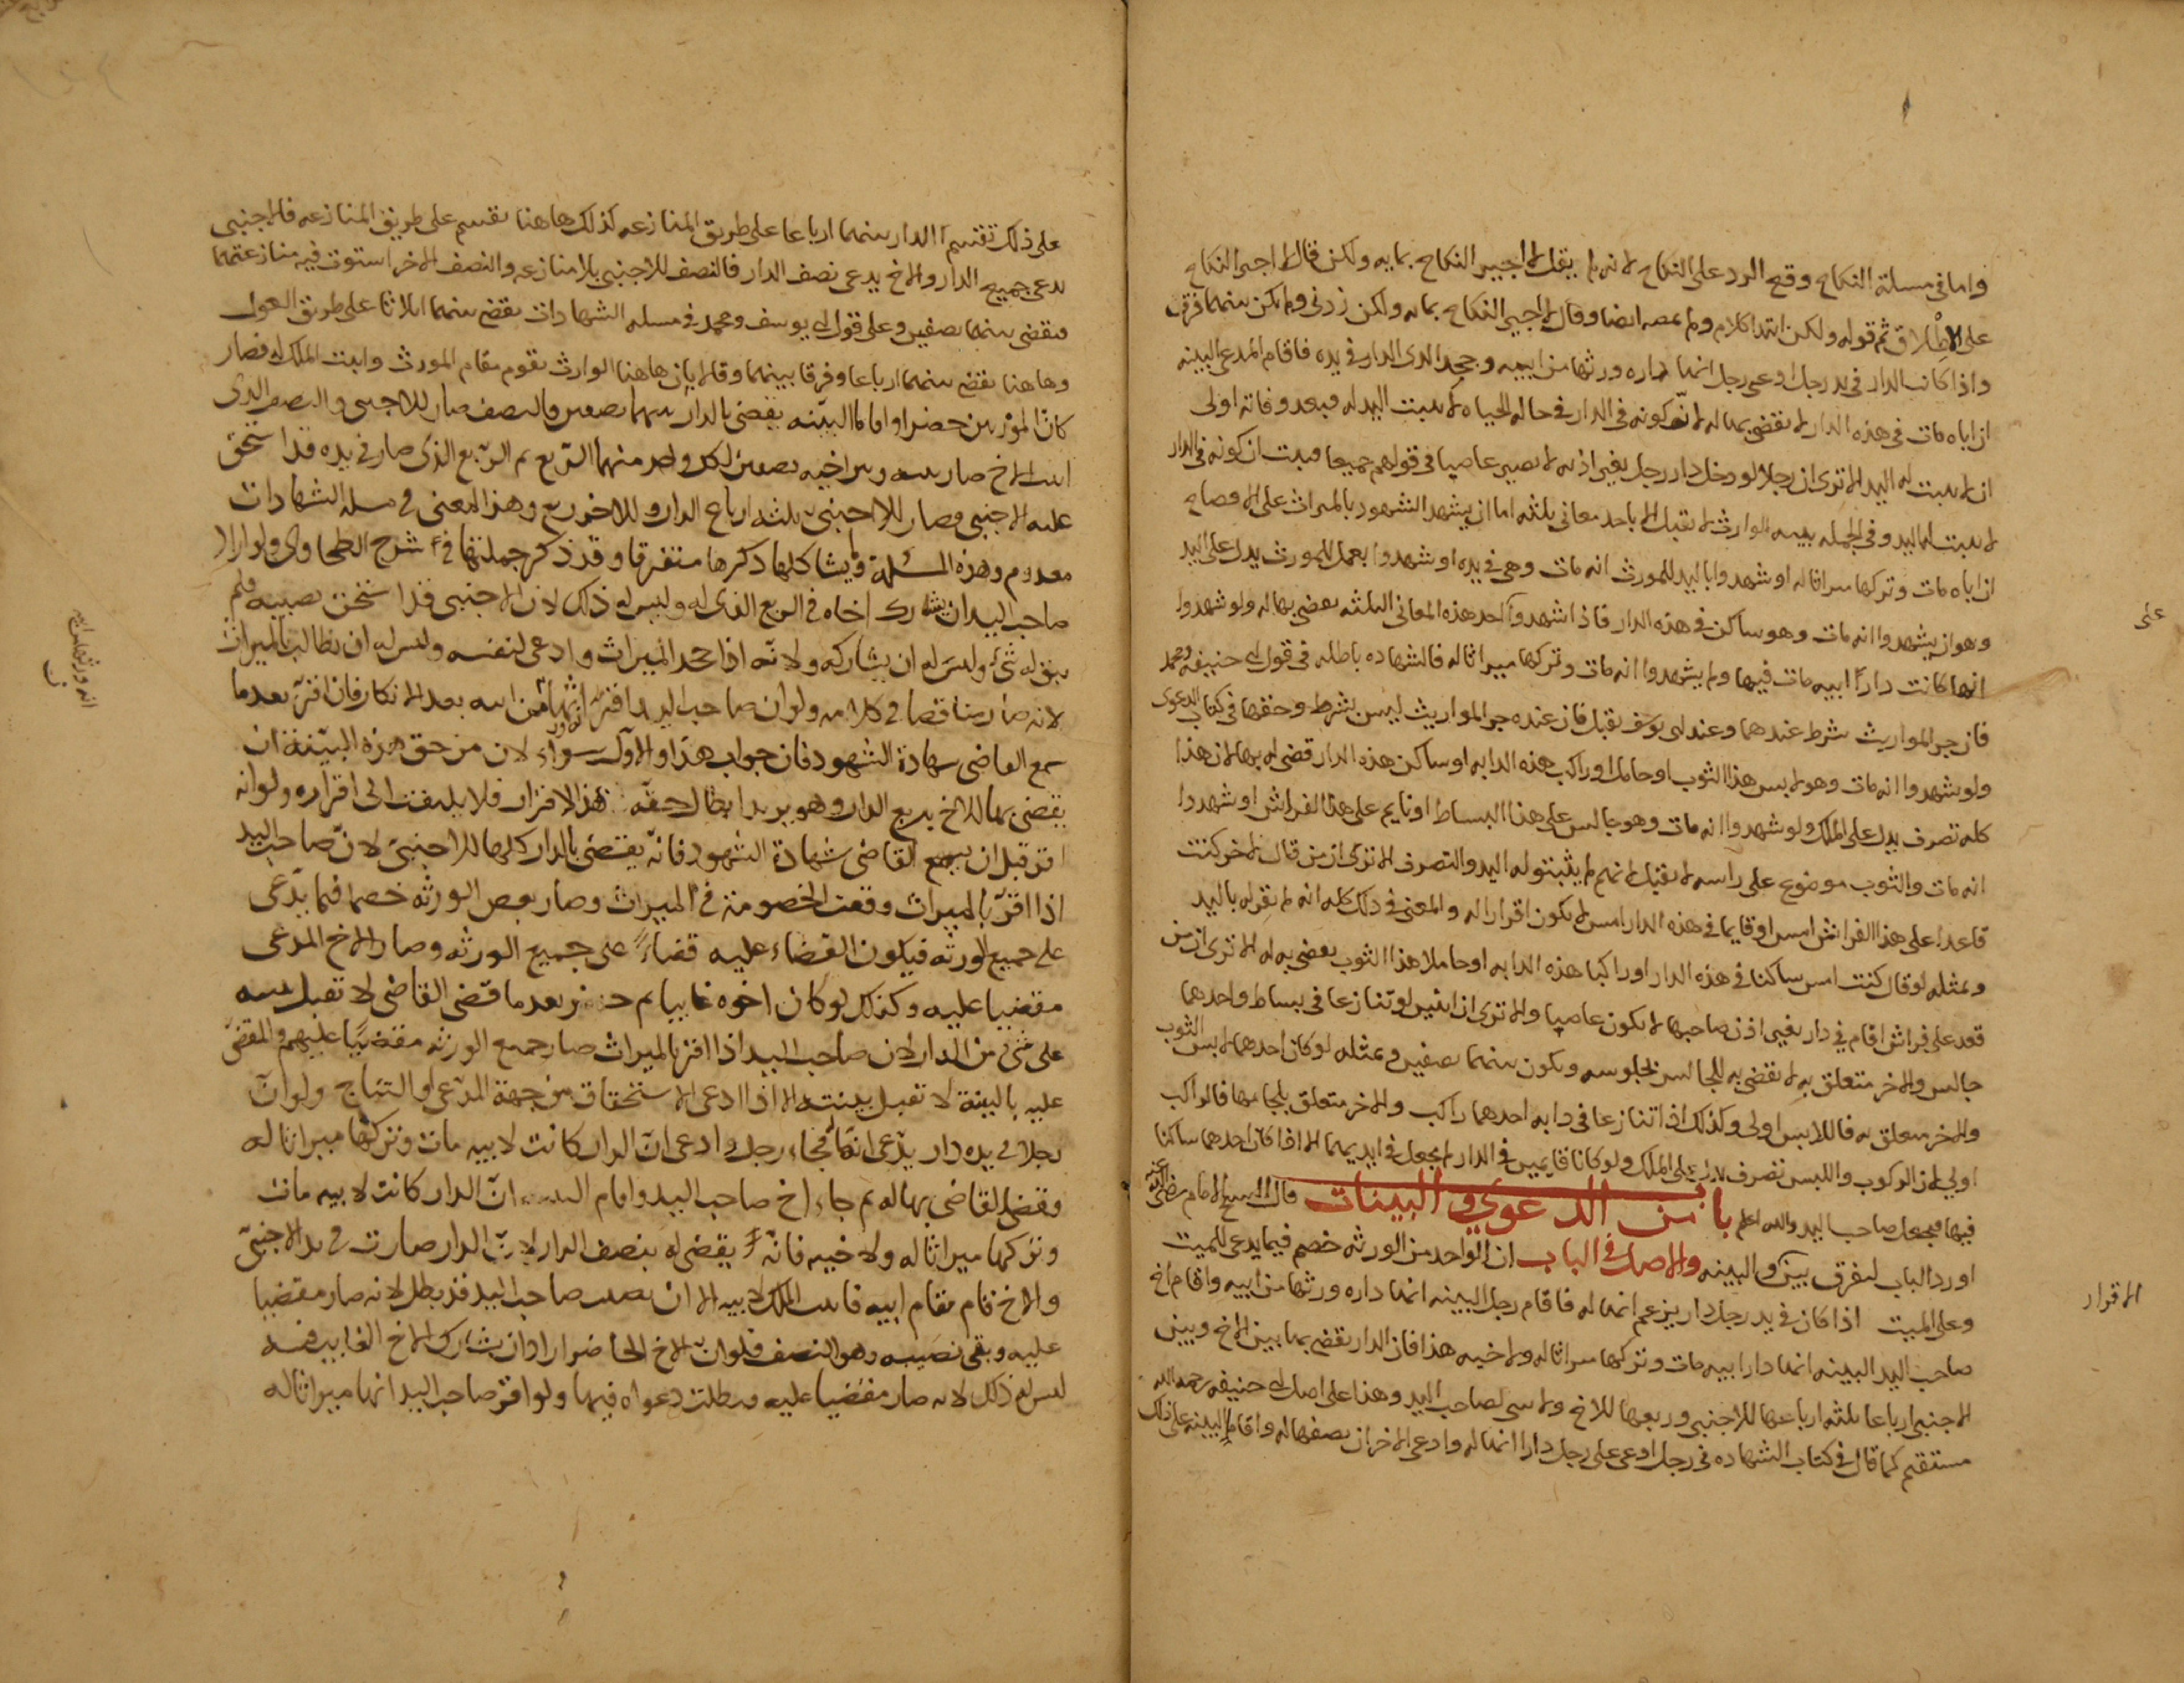 واما في مسلة النكاح وقع الرد على النكاح لانه لم يقل لا اجيز النكاح بمايه ولكن قال لا اجيز النكاح
على الاطلاق ثم قوله ولكن ابتدا كلام ولم ايضا وقال لا اجيز النكاح بمايه ولكن زدني ولم يكن بينهما فرق
واذا كانت الدار في يد رجل ادعى رجل انها داره ورثها من ابيه وجحد الذي الدار في يده فاقام المدعي البينه
ان اباه مات في هذه الدار لا يقضى بها له لانه كونه في الدار في حاله الحياه لا يثبت اليد له فبعد وفاته اولى
ان لا يثبت له اليد الا ترى ان رجلا لو دخل دار رجل بغير اذنه لا يصير غاصبا في قولهم جميعا فثبت ان كونه في الدار
لا يثبت له اليد وفي الجمله بينه الوارث لا تقبل الا باحد معاني ثلثه اما ان يشهد الشهود بالميراث على الافصاح
ان اباه مات وتركها ميراثا له او شهدوا باليد للمورث انه مات وهي في يده او شهدوا بعمل للمورث يدل على اليد
وهو ان يشهدوا انه مات وهو ساكن في هذه الدار فاذا شهدوا احد هذه المعاني الثلثه يقضى بها له ولو شهدوا
على
انها كانت دار ابيه مات فيها ولم يشهدوا انه مات وتركها ميراثا له فالشهاده باطله في قول ابي حنيفه ومحمد
فان جر المواريث شرط عندهما وعند ابي يوسف تقبل فان عنده جر المواريث ليس بشرط وحققها في كتاب الدعوى
ولو شهدوا انه مات وهو لابس هذا الثوب او حامل او راكب هذه الدابه او ساكن هذه الدار قضى له بها لان هذا
كله تصرف يدل على الملك ولو شهدوا انه مات وهو جالس على هذا البساط او نايم على هذا الفراش او شهدوا
انه مات والثوب موضوع على راسه لا يقبل لانهم لم يثبتو له اليد والتصرف الا ترى ان من قال لاخر كنت
قاعدا على هذا الفراش امس او قايما في هذه الدار امس لا يكون اقرارا له والمعنى في ذلك كله انه لم يقر له باليد
وبمثله لو قال كنت امس ساكنا في هذه الدار او راكبا هذه الدابه او حاملا هذا الثوب يقضى به له الا ترى ان من
قعد على فراش اقام في دار بغير اذن صاحبها لا يكون غاصبا والا ترى ان اثنين لو تنازعا في بساط واحدهما
جالس والاخر متعلق به لا يقضى به للجالس بجلوسه ويكون بينهما نصفين وبمثله لو كان احدهما لابس الثوب
والاخر متعلق به فاللابس اولى وكذلك اذا تنازعا في دابه احدهما راكب والاخر متعلق بلجامها فالراكب
اولى لان الركوب واللبس تصرف يدل على الملك ولو كانا قايمين في الدار لم يجعل في ايديهما الا اذا كان احدهما ساكنا
فيها فيجعل صاحب اليد والله اعلم باب من الدعوي والبينات قال الشيخ الامام رضي الله عنه
اورد الباب ليفرق بين والبينه والاصل في الباب ان الواحد من الورثه خصم فيما يدعى للميت
الاقرار
وعلى الميت اذا كان في يد رجل دار يزعم انها له فاقام رجل البينه انها داره ورثها من ابيه واقام اخ
صاحب اليد البينه انها دار ابيه مات وتركها ميراثا له ولاخيه هذا فان الدار يقضى بها بين الاخ وبين
الاجنبي ارباعا ثلثه ارباعها للاجنبي وربعها للاخ ولا شي لصاحب اليد وهذا على اصل ابي حنيفه رحمه الله
مستقيم كما قال في كتاب الشهاده في رجل ادعى على رجل دارا انها له وادعى الاخر ان نصفها له واقاما البينه على ذلك
على ذلك تقتسم الدار بينهما ارباعا على طريق المنازعه كذلك هاهنا يقسم على طريق المنازعه فالاجنبي
يدعي جميع الدار والاخ يدعي نصف الدار فالنصف للاجنبي بلا منازعه والنصف الاخر استوت فيه منازعتهما
فيقضى بينهما نصفين وعلى قول ابي يوسف ومحمد في مسله الشهادات يقضى بينهما اثلاثا على طريق العول
وهاهنا يقضى بينهما ارباعا وفرقا بينهما وقالا بان هاهنا الوارث يقوم مقام المورث واثبت الملك له فصار
كان المورث حضر او اقاما البينه يقضى بالدار بينهما نصفين فالنصف صار للاجنبي والنصف الذي
اثبت الاخ صار بينه وبين اخيه نصفين لكل واحد منهما الربع ثم الربع الذي صار في يده قد استحق
عليه الاجنبي فصار للاجنبي ثلثه ارباع الدار وللاخ ربع وهذا المعنى في مسله الشهادات
معدوم وهذه المسئلة وما يشاكلها ذكرها متفرقا وقد ذكر جملتها في شرح الطحاوي ولو اراد
صاحب اليد ان يشارك اخاه في الربع الذي له وليس له ذلك لان الاجنبي قد استحق نصيبه فلم
يبق له شئ وليس له ان يشاركه ولانه اذا جحد الميراث وادعى لنفسه وليس له ان يطالب بالميراث
لانه صار مناقضا في كلامه ولو ان صاحب اليد اقر انها من ابيه بعد الانكار فان اقر بعد ما
انه ورثها من ابيه
سمع القاضي شهادة الشهود فان جواب هذا والاول سواء لان من حق هذه البينة ان
يقضى بها للاخ بربع الدار وهو يريد ابطال حقه بهذا الاقرار فلا يلتفت الى اقراره ولو انه
اقر قبل ان يسمع القاضي شهادة الشهود فانه يقتضي بالدار كلها للاجنبي لان صاحب اليد
اذا اقر بالميراث وقعت الخصومة في الميراث وصار بعض الورثه خصما فيما يدعى
على جميع الورثه فيكون القضاء عليه قضاء على جميع الورثه وصار الاخ المدعي
مقضيا عليه وكذلك لو كان اخوه غايبا ثم حضر بعد ما قضى القاضي لا تقبل بينته
على شئ من الدار لان صاحب اليد اذا اقر بالميراث صار جميع الورثه مقضيا عليهم والمقضي
عليه بالبينة لا تقبل بينته الا اذا ادعى الاستحقاق من جهة المدعي او النتاج ولو ان
رجلا في يده دار يدعي انها له فجاء رجل وادعى ان الدار كانت لابيه مات وتركها ميراثا له
وقضى القاضي بها له ثم جاء اخ صاحب اليد واقام البينه ان الدار كانت لابيه مات
وتركها ميراثا له ولاخيه فانه يقضى له بنصف الدار لان الدار صارت في يد الاجنبي
والاخ قام مقام ابيه فاثبت الملك لابيه الا ان نصيب صاحب اليد قد بطل لانه صار مقضيا
عليه وبقي نصيبه وهو النصف فلو ان الاخ الحاضر اراد ان يشارك الاخ الغايب فيه
ليس له ذلك لانه صار مقضيا عليه وبطلت دعواه فيها ولو اقر صاحب اليد انها ميراثا له